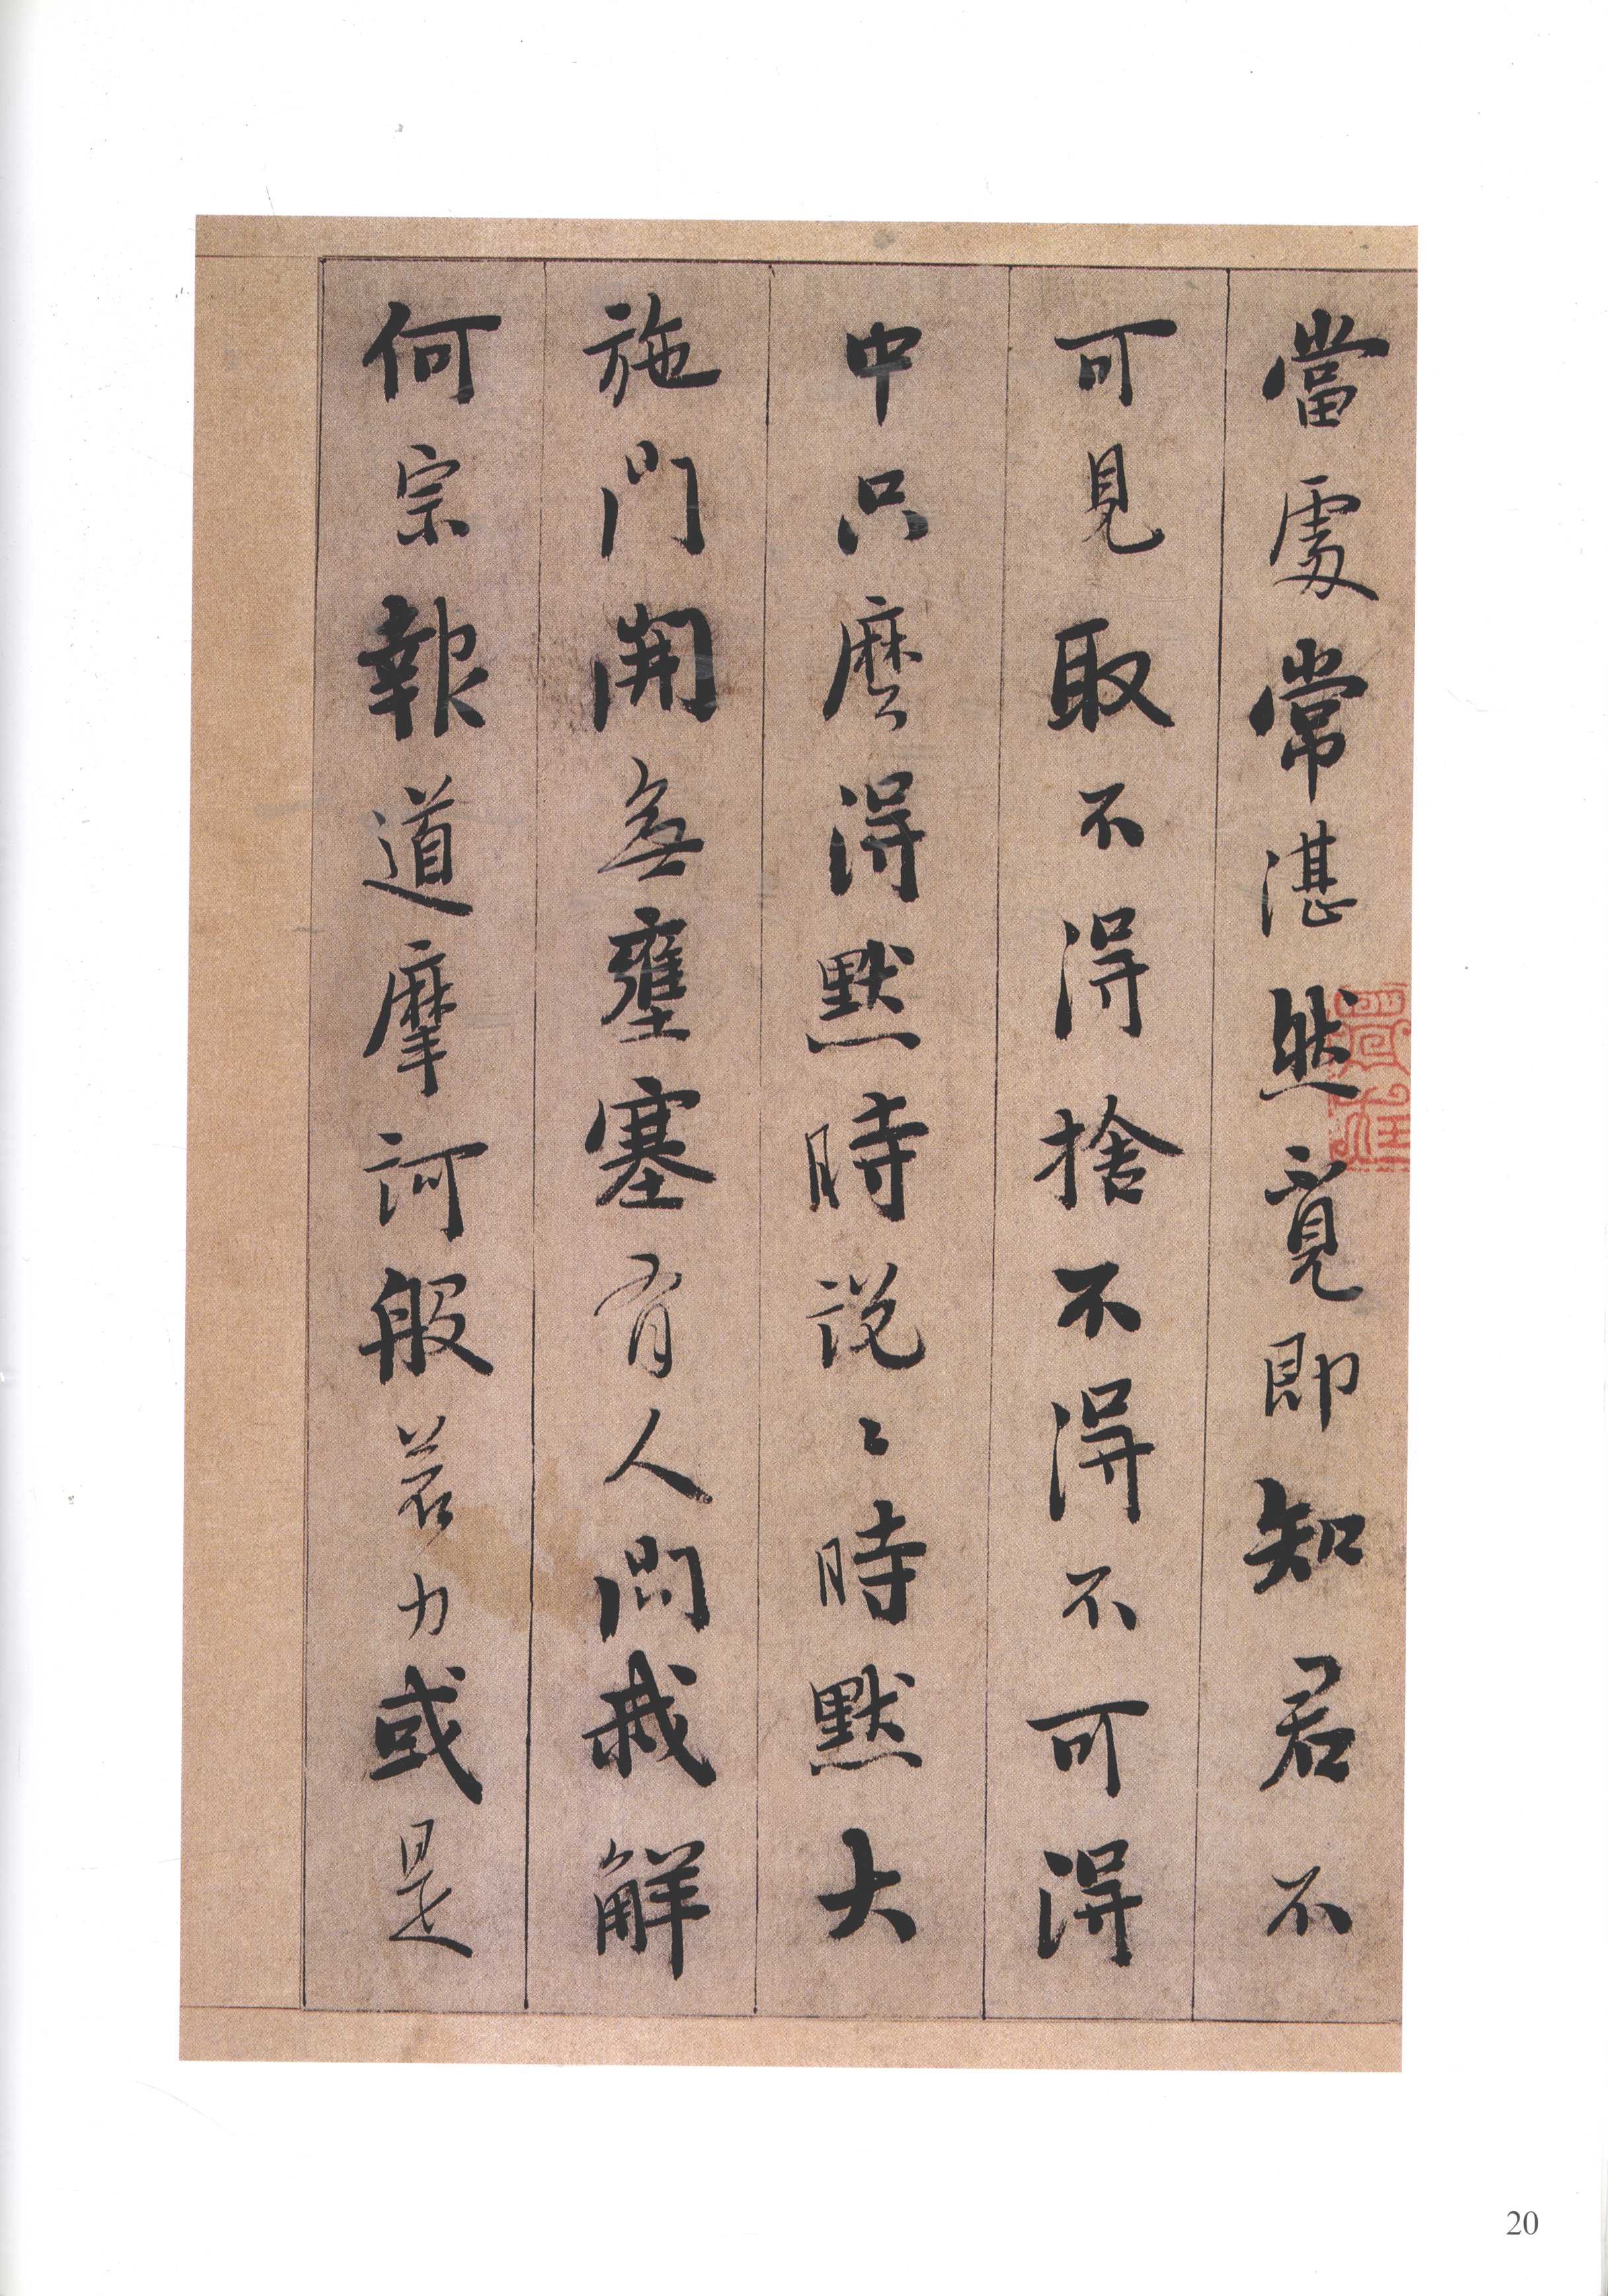 當處常湛然覓即知君不
可見取不得捨不得不可得
中只麼得默時説〻時默大
施門開無壅塞有人問我解
何宗報道摩訶般若力或是
20